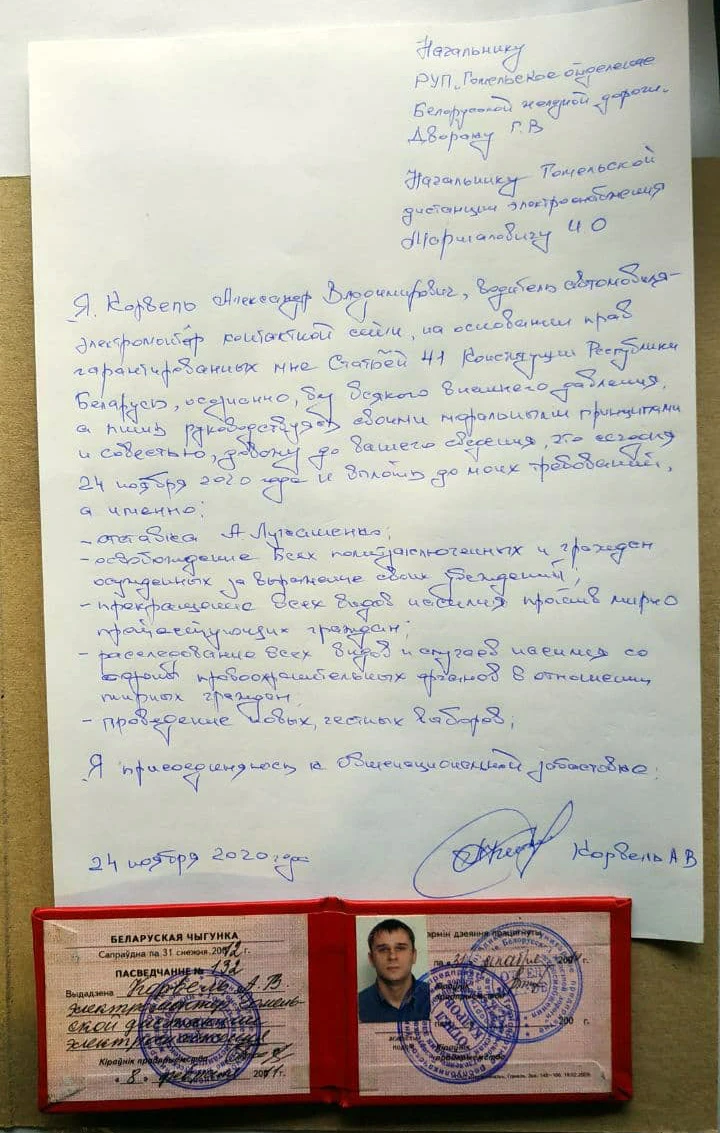 Начальнику
РУП „Гомельское отделение
Белорусской железной дороги„
Дворяку Г.В
Начальнику Гомельской
дистанции электроснабжения
И О
Я. Корвель Александр Владимирович, водитель автомобиля-
электромонтёр контактной сети, на основании прав
гарантированных мне Статьёй 41 Конституции Республики
Беларусь, осознанно, без всякого внешнего давления,
а лишь руководствуясь своими моральными принципами
и совестью, довожу до вашего сведения, что сегодня
24 ноября 2020 года и вплоть до моих требований,
а именно:
- отставка А Лукашенко;
- освобождение всех политзаключенных и граждан
осужденных за выражение своих убеждений;
- прекращение всех видов насилия против мирно
протестующих граждан;
- расследование всех видов и случаев насилия со
стороны правоохранительных органов в отношении
мирных граждан;
- проведение новых, честных выборов;
Я присоединяюсь к общенациональной забастовке.
24 ноября 2020 года
Корвель А В
БЕЛАРУСКАЯ ЧЫГУНКА
Сапраўдна па 31 снежня 2012 г.
ПАСВЕДЧАННЕ № 132
Выдадзена Корвель А.В.
электромонтер Гомель-
ской дистанции
электроснабжения
Кіраўнік прадпрыемства
8 февраля 2011 г.
тэрмін дзеяння працягнуты
па 31 декабря 20
Кіраўнік
прадпрыемства
200 г.
Кіраўнік
прадпрыемства